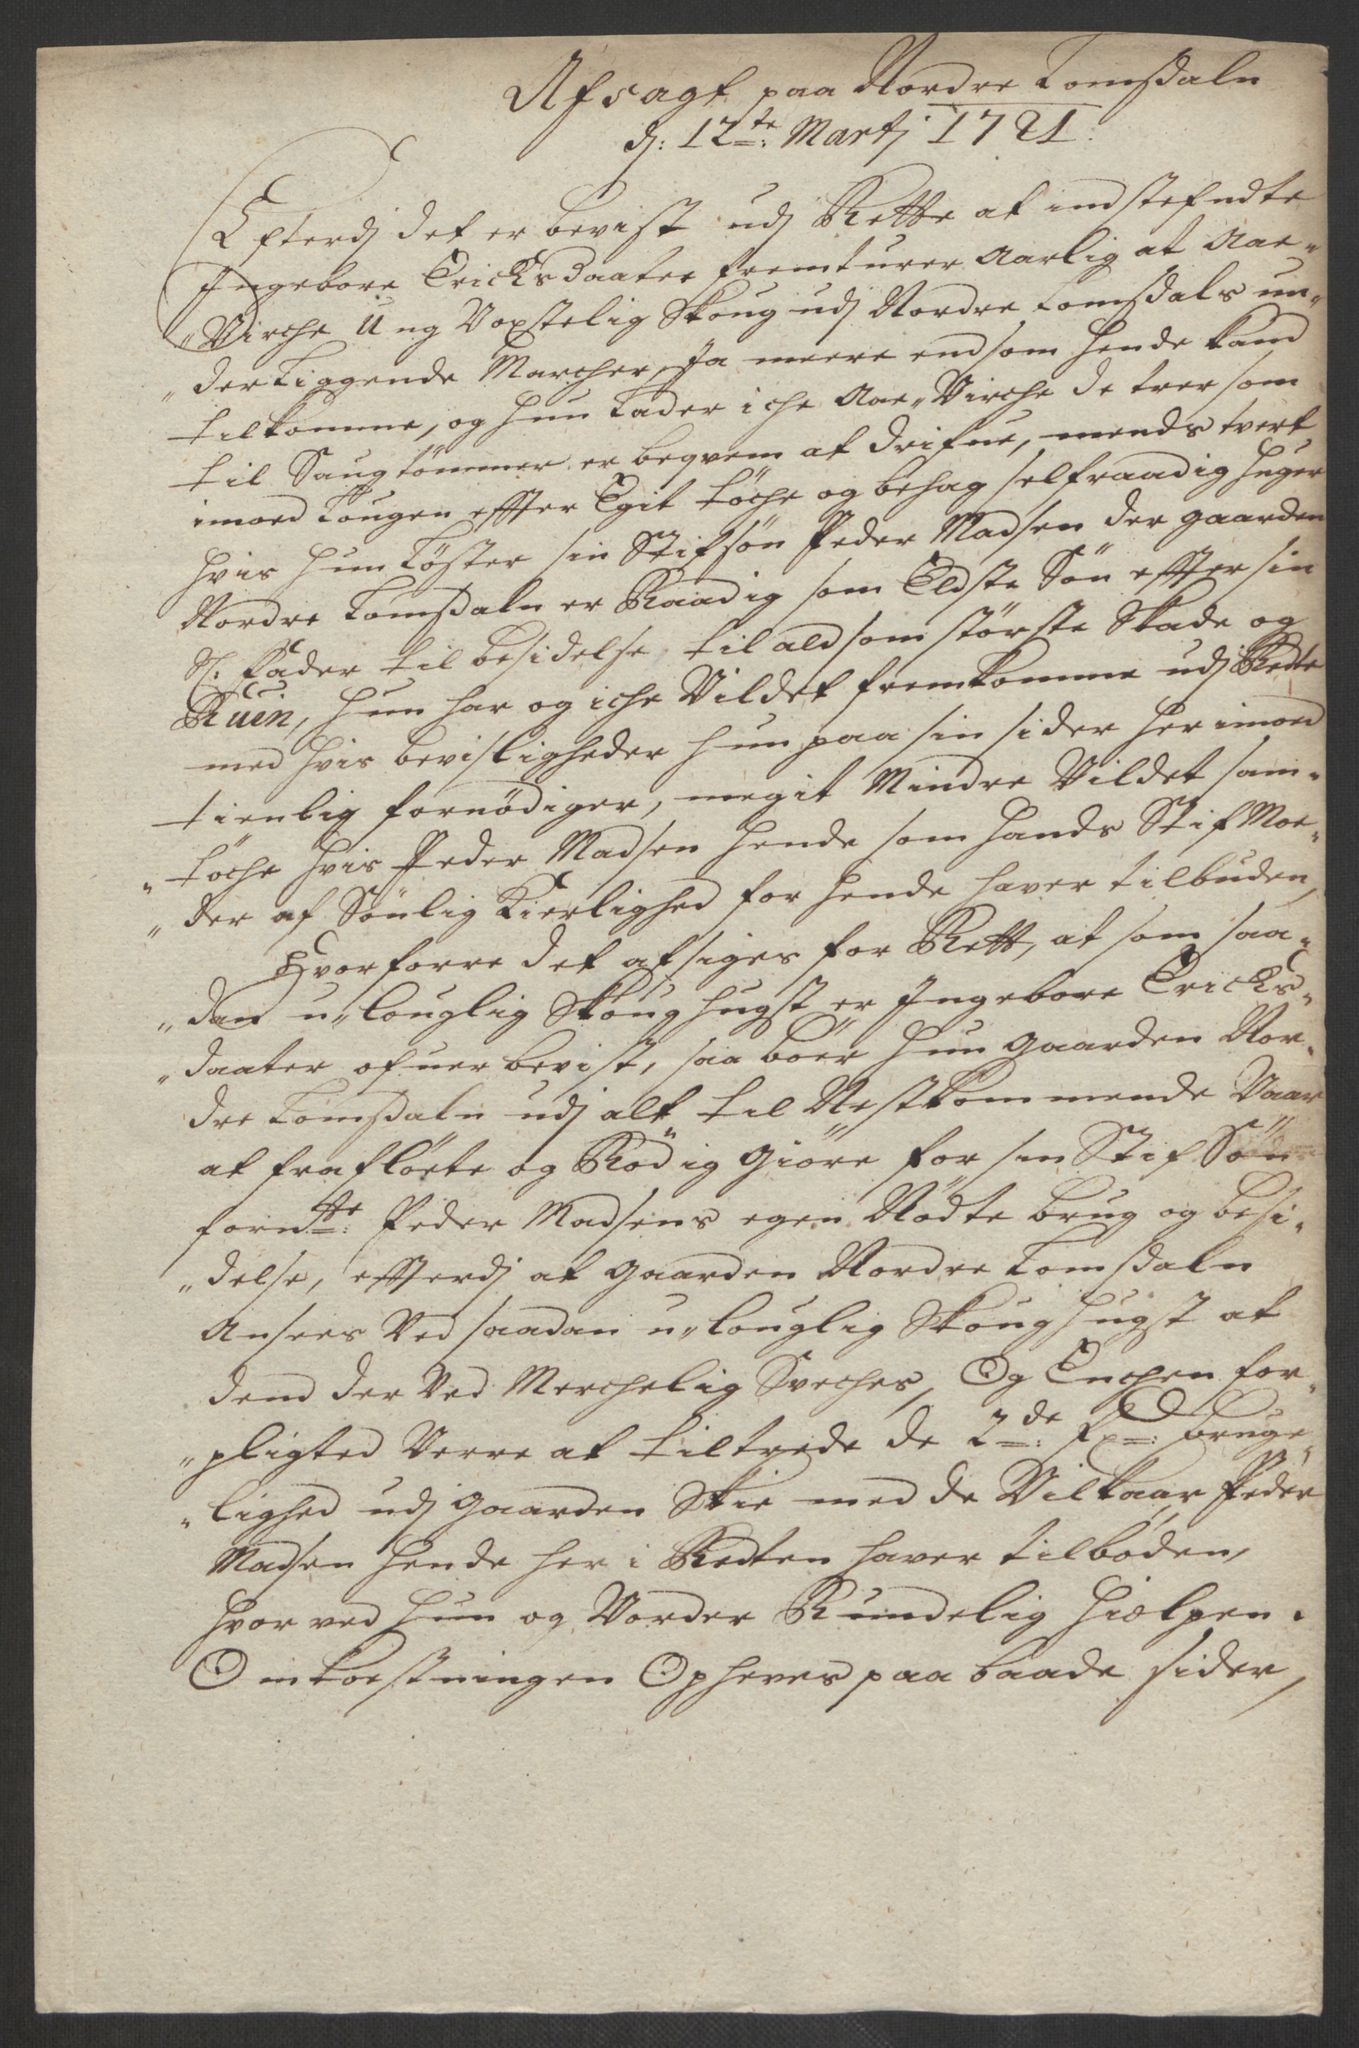 Afsagt paa Nordre Lomsdaln
d: 12te: Martj 1721:
Efterdj det er bevist udj Rette at indstefndte
Ingebore Ericksdaater fremturer Aarlig at Aae-
„Virche Ung Voxstelig Skoug udj Nordre Lomsdals un-
„derliggende Marcher, Ja meere end som hende kand
tilkomme, og hun lader iche Aae„Virche de trer som
til Saugtømmer er beqvem at drifue, mends tvert
imoed Lougen effter Egit tøche og behag selfraadig huger
hvis hun Løster sin Stifsøn Peder Madsen der gaarden
Nordre Lomsdaln er Raadig som Eldste Søn effter sin
Sl. Fader til besidelse, til ald som største Skade og
Ruin, hun har og iche Vildet fremkomme udj Rette
med hvis bevisligheder hun paa sin sider her imoed
tienlig fornødiger, megit Mindre Vildet sam-
„tøche hvis Peder Madsen hende som hands Stif Moe-
„der af Sønlig Kierlighed for hende haver tilbuden,
Hvorforre det afsiges for Rett, at som saa-
„dan u„louglig Skoug hugst er Ingebore Ericks-
„daater ofuerbevist, saa boer hun gaarden Nor-
dre Lomsdaln udj alt til Nestkommende Vaar
at frafløte og Rødig giøre for sin Stif Søn
fornte: Peder Madsens egen Nødte brug og besi-
„delse, effterdj at gaarden Nordre Lomsdaln
Ansees Ved saadan u„louglig Skoug hugst at
dend der Ved Merchelig Sveches, Og Enchen for-
„pligted Verre at tiltrede de 2de: bruge-
„lighed udj gaarden Skie med de Vilkaar Peder
Madsen hende her i Retten haver tilbøden,
hvorved hun og Vorder Rundelig hiolpen.
Omkoestningen Opheves paa baade sider,